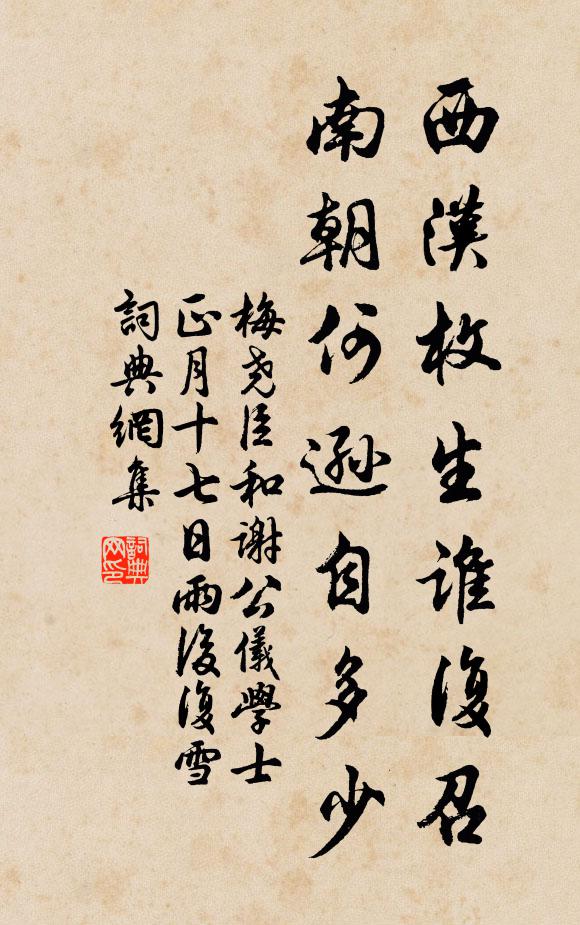 西漢枚生誰復召
南朝何遜自多少
梅堯臣和謝公儀學士
正月十七日雨後復雪
詞典網集
詞典網印